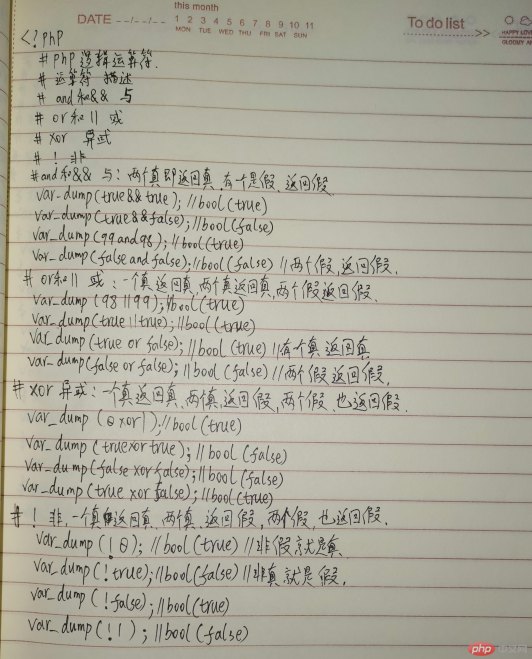 this month
DATE --/--/-- 1 2 3 4 5 6 7 8 9 10 11
MON TUE WED THU FRI SAT SUN
To do list
>>
HAPPY LOV
GLOOMY AN
<?php
# php 逻辑运算符.
# 运算符 描述
# and和&& 与
# or和|| 或
# xor 异或
# ! 非
#and和&& 与: 两个真即返回真,有个是假,返回假
var_dump(true&&true); //bool(true)
var_dump(true&&false); //bool(false)
var_dump(99and98); //bool(true)
var_dump(false and false); //bool(false) //两个假,返回假.
# or和|| 或: 一个真返回真,两个真返回真,两个假返回假.
var_dump(98||99); //bool(true)
var_dump(true||true); //bool(true)
var_dump(true or false); //bool(true) //有个真返回真
var_dump(false or false); //bool(false) //两个假返回假,
# xor 异或: 一个真返回真,两真,返回假,两个假,也返回假.
var_dump(0 xor 1); //bool(true)
var_dump(truexortrue); //bool(false)
var_dump(false xor false); //bool(false)
var_dump(true xor false); //bool(true)
# ! 非,一个真返回真,两真,返回假,两个假,也返回假.
var_dump(!0); //bool(true) //非假就是真
var_dump(!true); //bool(false) //非真就是假,
var_dump(!false); //bool(true)
var_dump(!1); //bool(false)
php